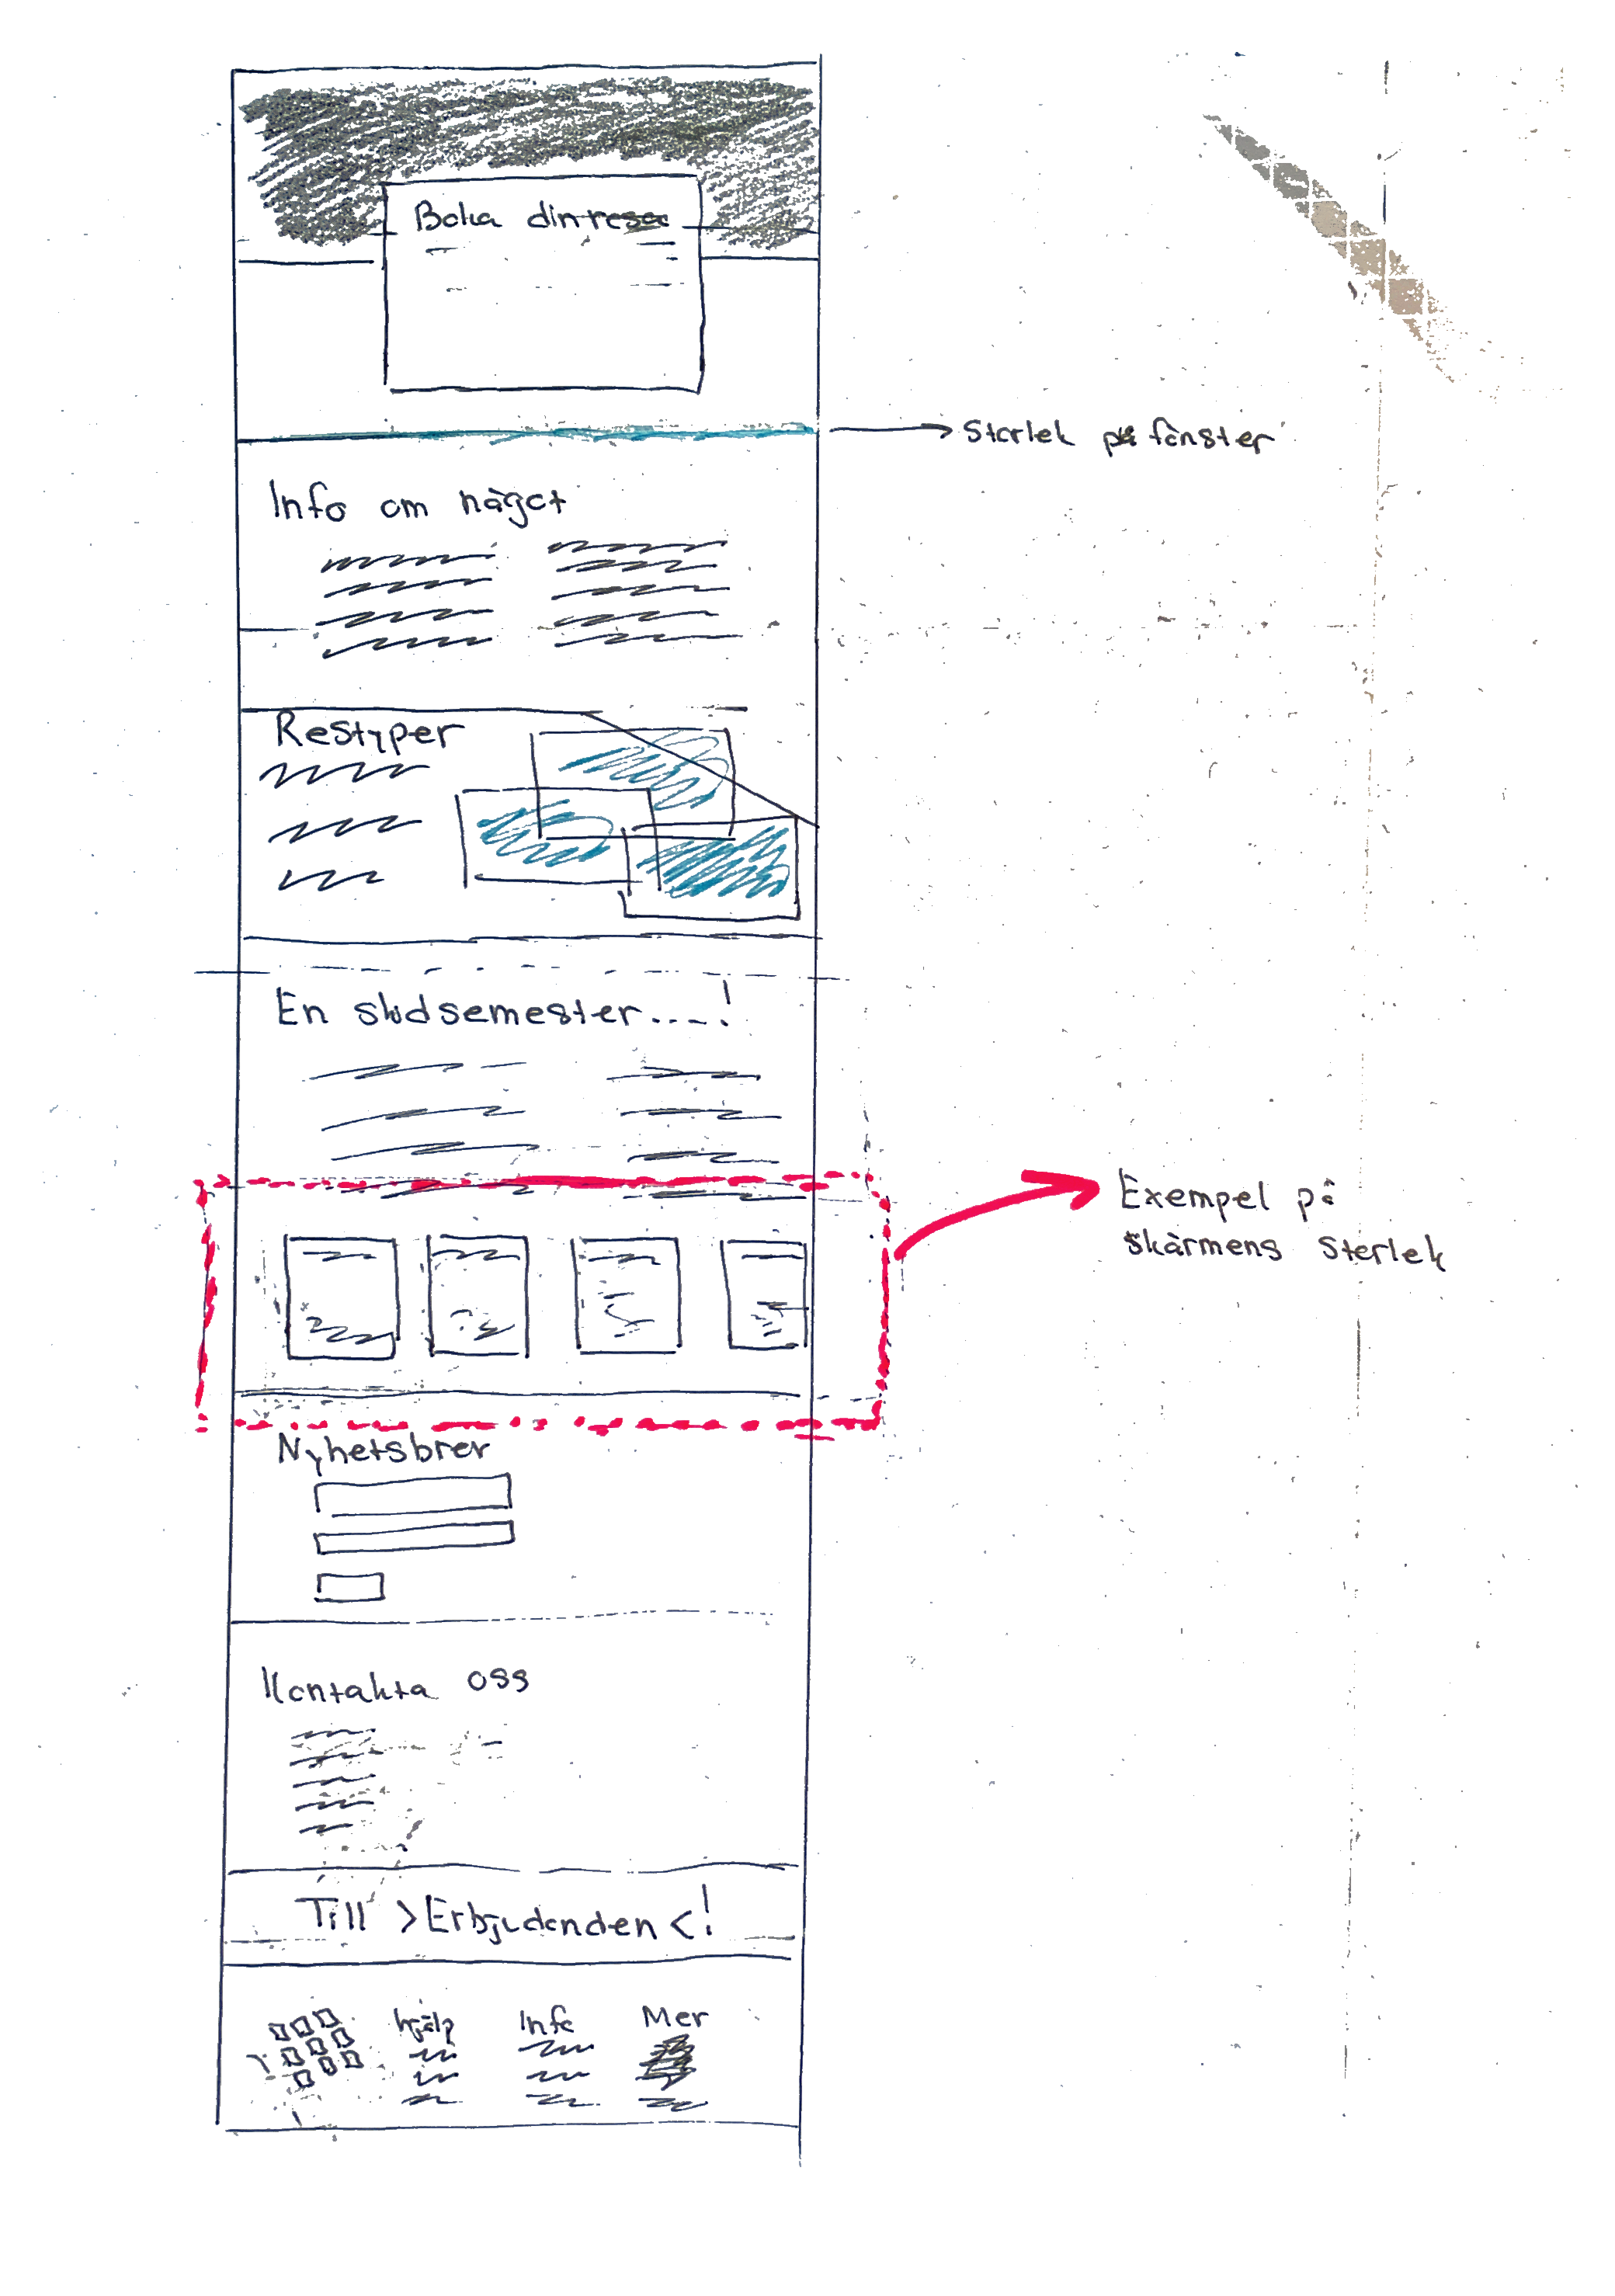 Boka din resa
Storlek på fönster
Info om något
Restyper
En skidsemester....!
Exempel på
skärmens storlek
Nyhetsbrev
Kontakta oss
Till >Erbjudanden<!
hjälp
Info
Mer